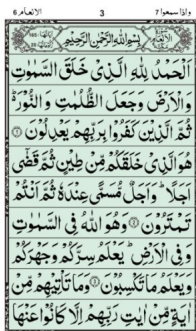 الانعام ٦ 3 واذا سمعوا ٧
بِسْمِ اللّٰهِ الرَّحْمٰنِ الرَّحِيْمِ
اَلْحَمْدُ لِلّٰهِ الَّذِیْ خَلَقَ السَّمٰوٰتِ
وَ الْاَرْضَ وَجَعَلَ الظُّلُمٰتِ وَ النُّوْرَ ۬ؕ
ثُمَّ الَّذِیْنَ كَفَرُوْا بِرَبِّهِمْ یَعْدِلُوْنَ ۝
هُوَ الَّذِیْ خَلَقَكُمْ مِّنْ طِیْنٍ ثُمَّ قَضٰۤی
اَجَلًا ؕ وَ اَجَلٌ مُّسَمًّی عِنْدَهٗ ثُمَّ اَنْتُمْ
تَمْتَرُوْنَ ۝ وَهُوَ اللّٰهُ فِی السَّمٰوٰتِ
وَ فِی الْاَرْضِ ؕ یَعْلَمُ سِرَّكُمْ وَجَهْرَكُمْ
وَیَعْلَمُ مَا تَكْسِبُوْنَ ۝ وَمَا تَاْتِیْهِمْ مِّنْ
اٰیَةٍ مِّنْ اٰیٰتِ رَبِّهِمْ اِلَّا كَانُوْا عَنْهَا